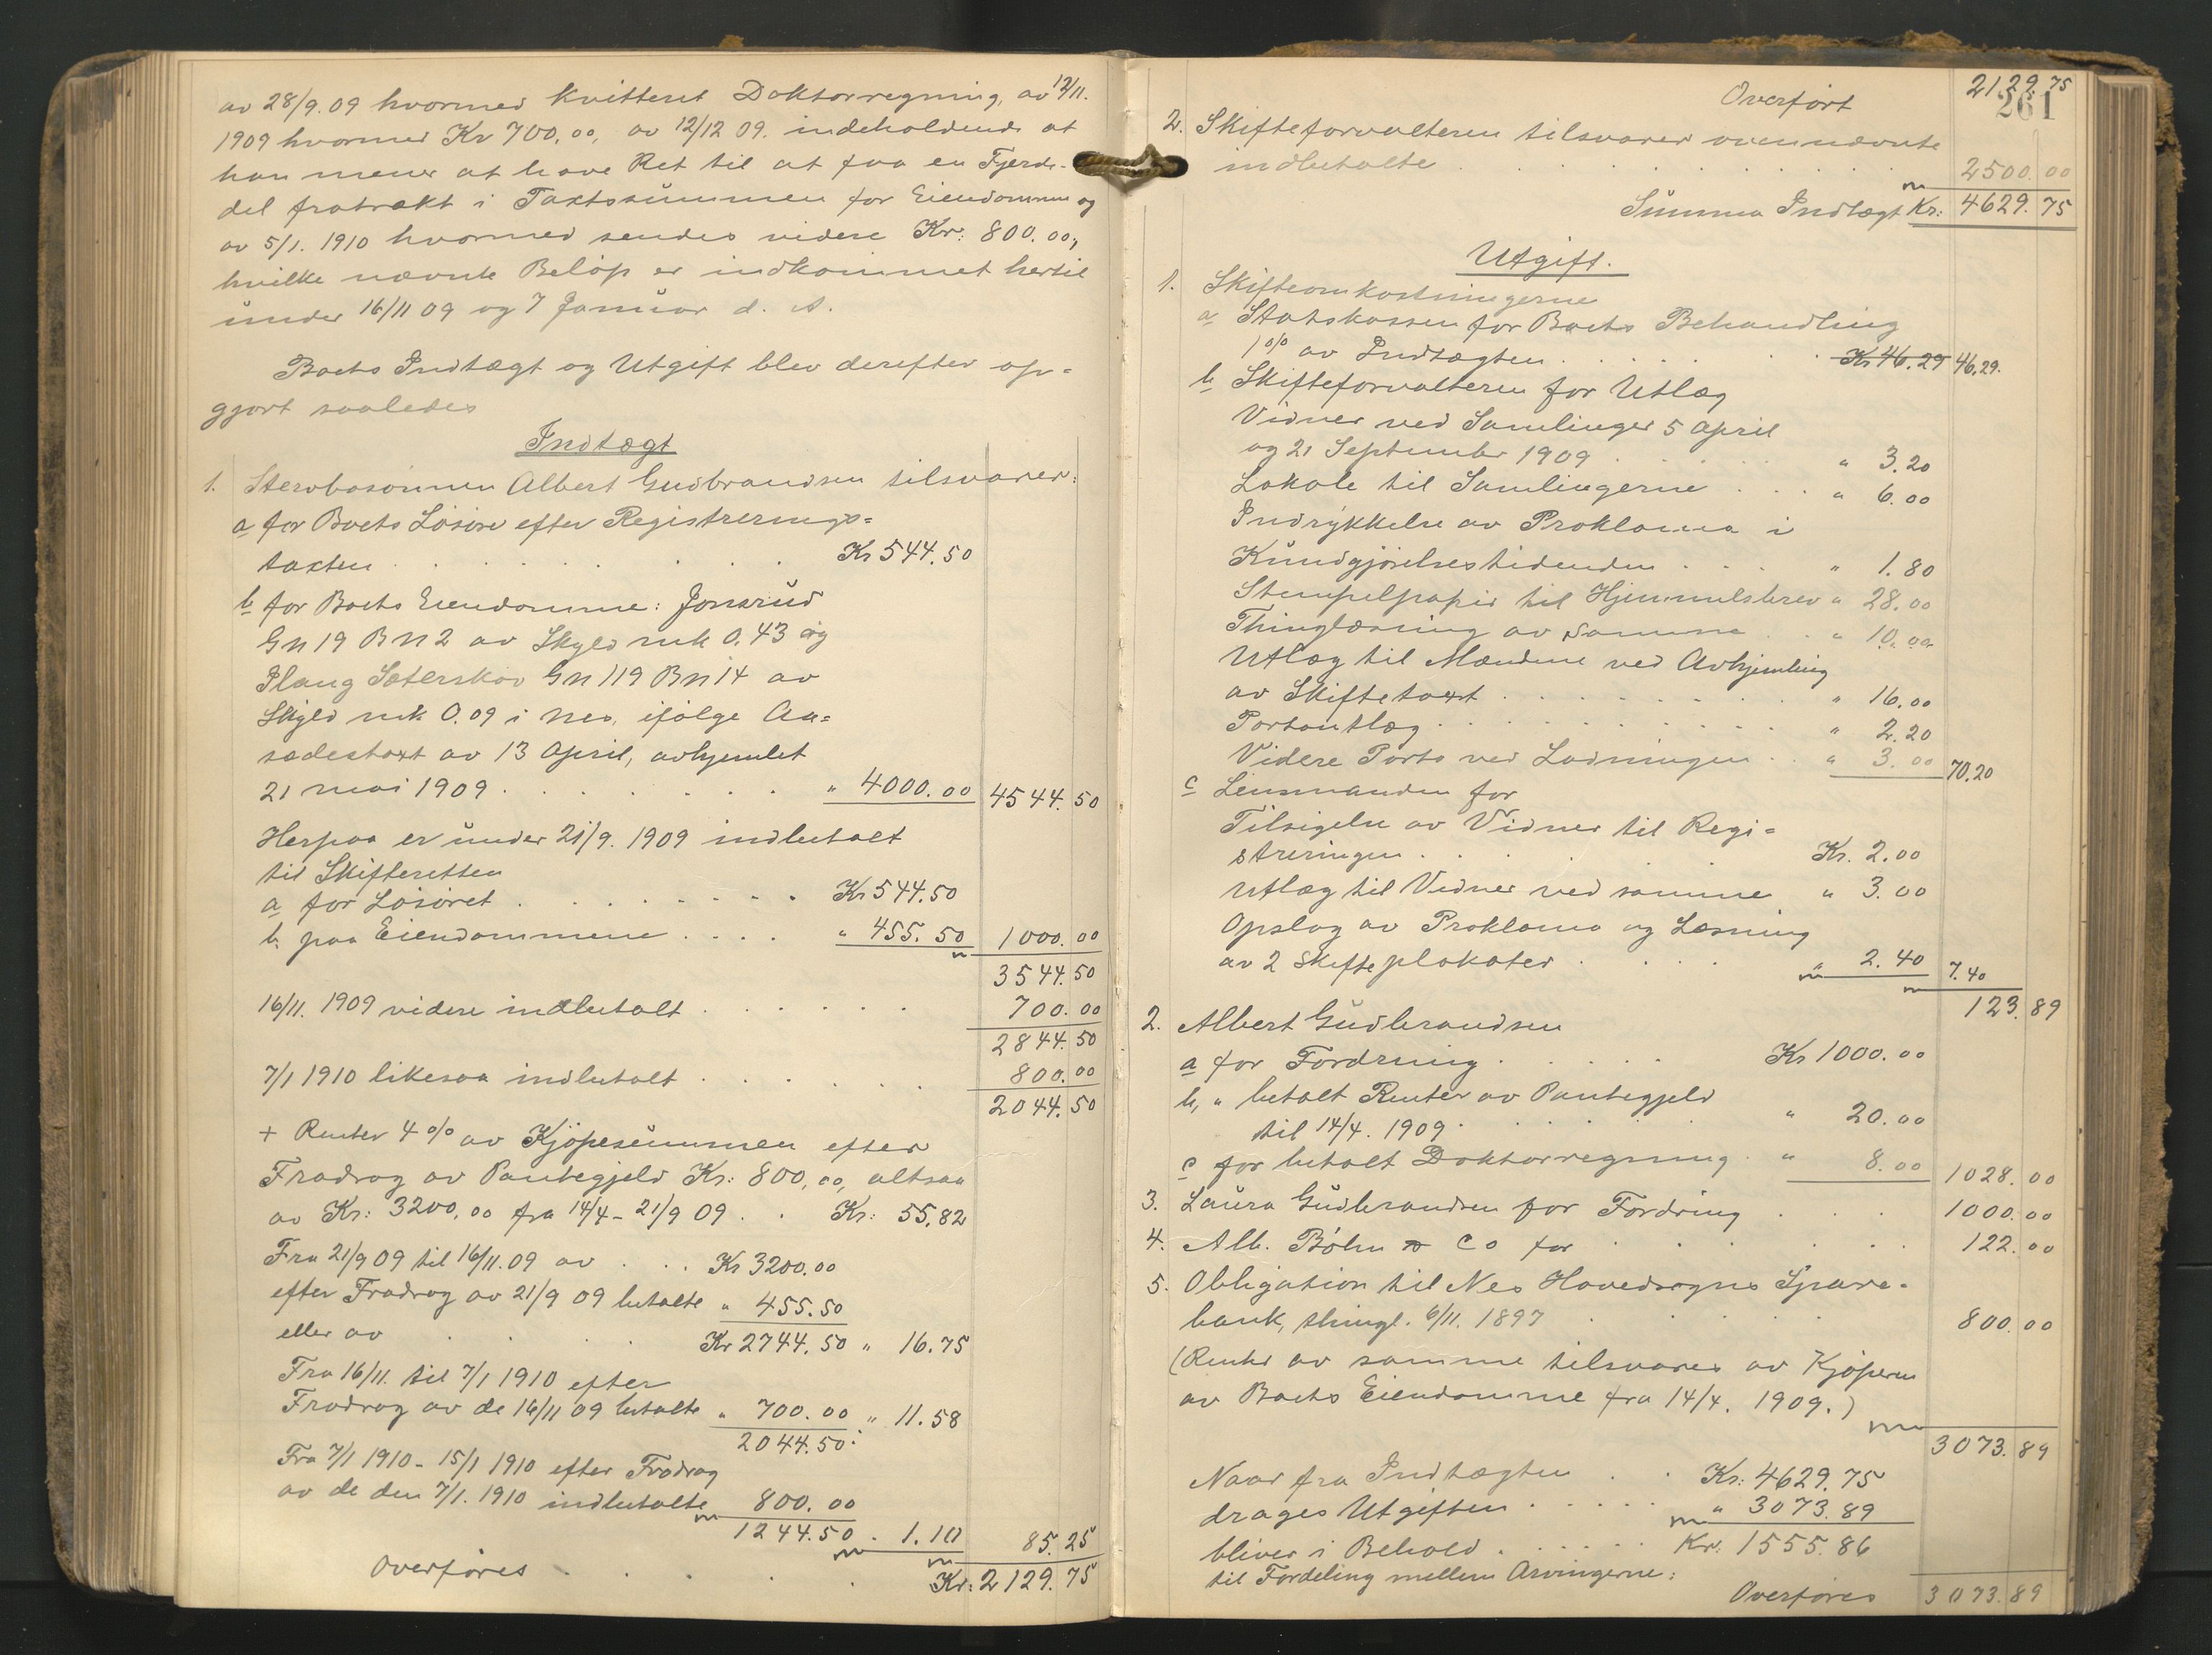 av 28/9. 09 hvormed kvitteret Doktorregning, av 12/11.
1909 hvormed Kr 700,00, av 12/12 09. indeholdende at
han mener at have Ret til at faa en Fjerde-
del fratrækt i Taxtsummen for Eiendommen og
av 5/1. 1910 hvormed sendes videre Kr: 800.00,
hvilke nævnte Beløp er indkommet hertil
under 16/11 09 og 7 Januar d. A.
Boets Indtægt og Utgift blev derefter op-
gjort saaledes
Indtægt
1. Stervbosønnen Albert Gudbrandsen tilsvarer:
a for Boets Løsøre efter Registrerings=
taxten . . . . . . Kr 544.50
b for Boets Eiendomme: Jonsrud
Gn 19 Bn 2 av Skyld mk 0.43 og
Plang Sæterskov Gn 119 Bn 14 av
Skyld mk 0.09 i Nes, ifølge Aa-
sædestaxt av 13 April, avhjemlet
21 mai 1909 . . . . . . " 4000.00 4544.50
Herpaa er under 21/9. 1909 indbetalt
til Skifteretten
a for Løsøret . . . . . . . Kr 544.50
b. paa Eiendommene . . . . " 455.50 1000.00
3544.50
16/11. 1909 videre indbetalt . . . . . . 700.00
2844.50
7/1 1910 likesaa indbetalt . . . . . . 800.00
2044.50
+ Renter 4 % av Kjøpesummen efter
Fradrag av Pantegjeld Kr: 800,00, altsaa
av Kr: 3200,00 fra 14/4 - 21/9 09 . . Kr: 55,82
Fra 21/9 09 til 16/11. 09 av . . . Kr 3200.00
efter Fradrag av 21/9 09 betalte " 455.50
eller av . . . Kr 2744.50 " 16.75
Fra 16/11. til 7/1 1910 efter
Fradrag av de 16/11 09 betalte " 700.00 " 11.58
2044.50.
Fra 7/1 1910 - 15/1 1910 efter Fradrag
av de den 7/1. 1910 indbetalte 800.00
1244.50 . 1.10 85.25
Overføres . . . . . Kr: 2129.75
261
Overført 2129.75
2. Skifteforvalteren tilsvarer ovennævnte
indbetalte . . . . . . . . 2500.00
Summa Indtægt Kr: 4629.75
Utgift.
1. Skifteomkostningerne
a Statskassen for Boets Behandling
1 % av Indtægten . . . . . . Kr 46.29 46.29.
b Skifteforvalteren for Utlæg
Vidner ved Samlinger 5 April
og 21 September 1909 . . . . . " 3.20
Lokale til Samlingerne . . . " 6.00
Indrykkelse av Proklama i
Kundgjørelsestidenden . . . " 1.80
Stempelpapir til Hjemmelsbrev " 28.00
Thinglæsning av Samme . . " 10.00
Utlæg til Mændene ved Avhjemling
av Skiftetaxt . . . . . . . . " 16.00
Portoutlæg . . . . . . . . . " 2.20
Videre Porto ved Lodningen . . " 3.00 70.20
c Lensmanden for
Tilsigelse av Vidner til Regi=
streringen . . . . . . Kr. 2.00
Utlæg til Vidner ved samme " 3.00
Opslag av Proklama og Læsning
av 2 Skifteplakater . . . . " 2.40 7.40
123.89
2. Albert Gudbrandsen
a for Fordring . . . . . Kr 1000.00
b, " betalt Renter av Pantegjeld
til 14/4. 1909 . . . . . . " 20.00
c for betalt Doktorregning . " 8.00 1028.00
3. Laura Gudbrandsen for Fordring . . . 1000.00
4. Alb. Bøhn & Co for . . . . . . 122.00
5. Obligation til Nes Hovedsogns Spare-
bank, thingl. 6/11. 1897 . . . . . 800.00
(Renter av samme tilsvares av Kjøperen
av Boets Eiendomme fra 14/4. 1909.)
3073.89
Naar fra Indtægten . . Kr: 4629.75
drages Utgiften . . . . . " 3073.89
bliver i Behold . . . . . Kr: 1555.86
til Fordeling mellem Arvingerne:
Overføres 3073.89